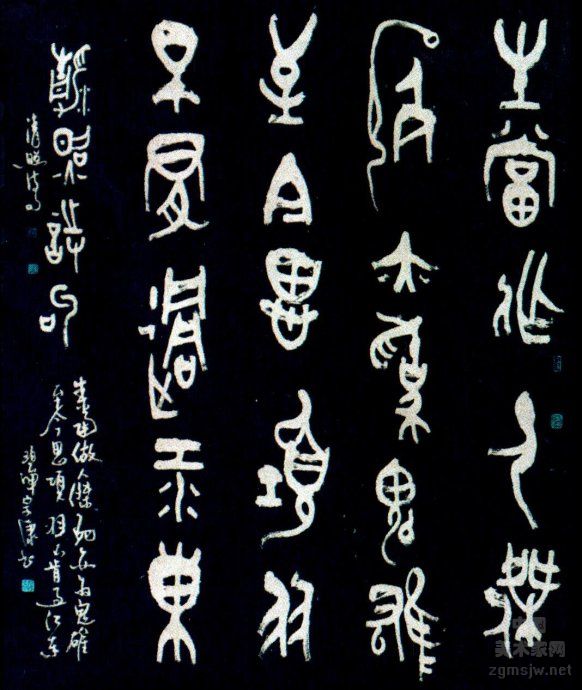 生當作人傑
死亦為鬼雄
至今思項羽
不肯過江東
詩句
生當做人傑死亦為鬼雄
至今思項羽不肯過江東
中国
美术家网
zgmsjw.net